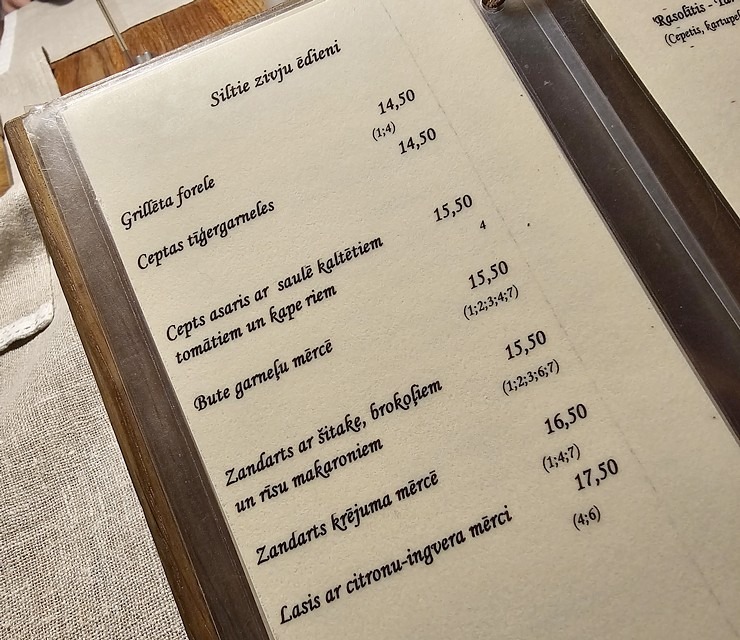 Siltie zivju ēdieni
Grillēta forele 14,50
(1;4)
Ceptas tīģergarneles 14,50
Cepts asaris ar saulē kaltētiem 15,50
tomātiem un kape riem 4
Bute garneļu mērcē 15,50
(1;2;3;4;7)
Zandarts ar šitake, brokoļiem 15,50
un rīsu makaroniem (1;2;3;6;7)
Zandarts krējuma mērcē 16,50
(1;4;7)
Lasis ar citronu-ingvera mērci 17,50
(4;6)
Rasolītis -
(Cepetis,